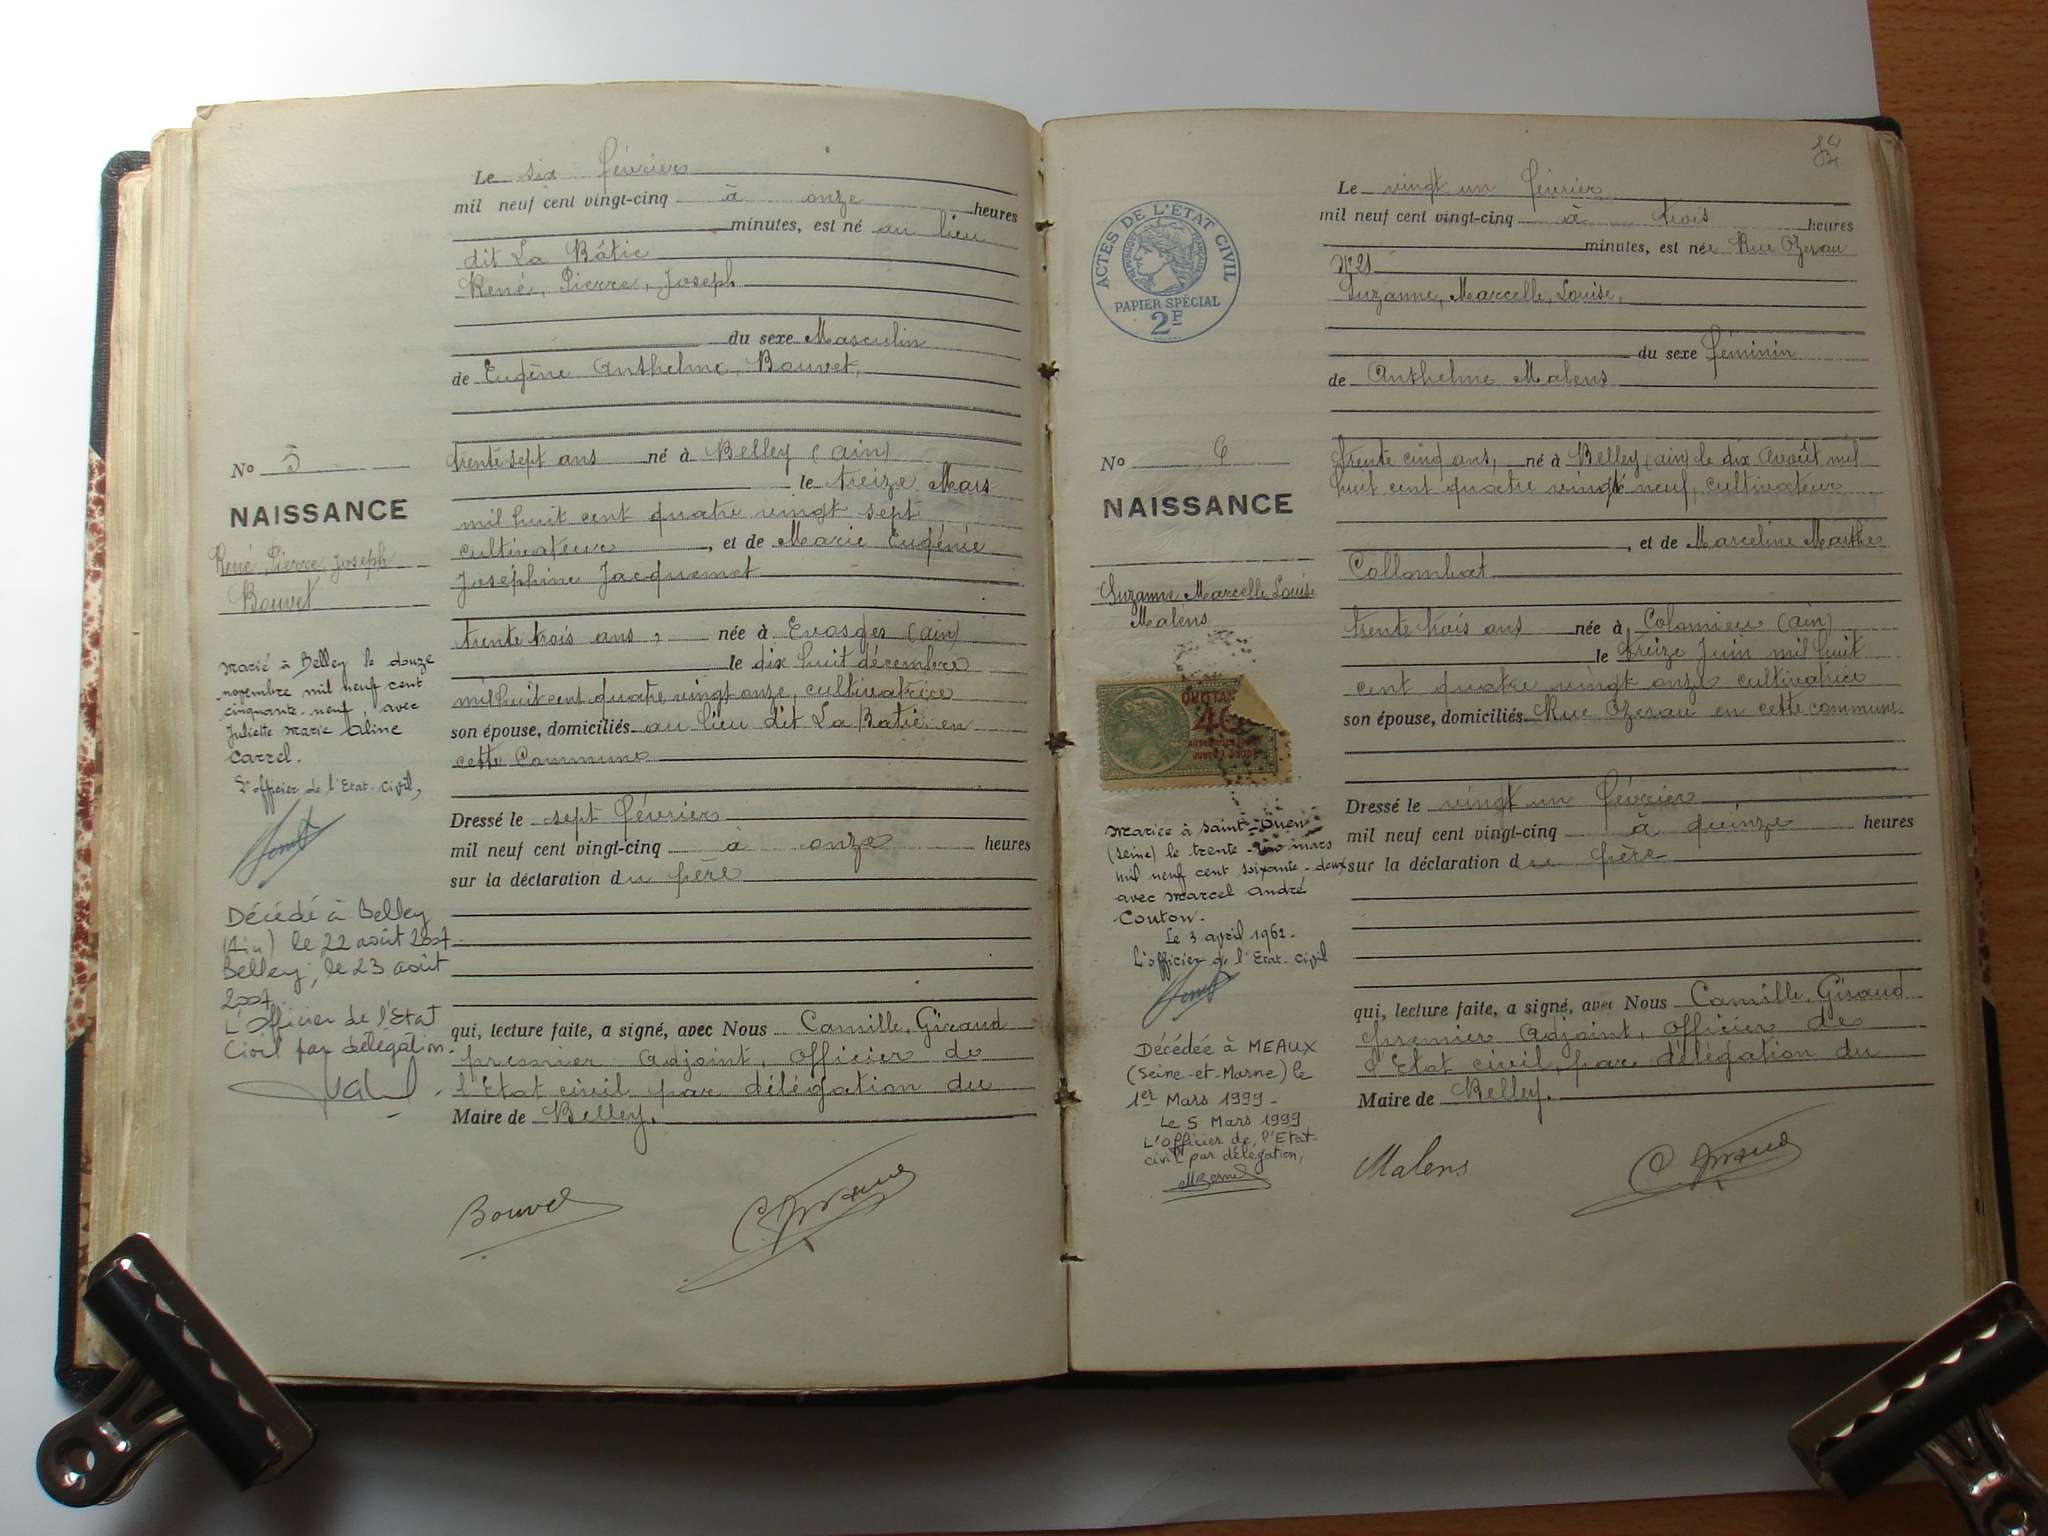 Le six février
mil neuf cent vingt-cinq à onze heures
minutes, est né au lieu
dit La Bâtie
René, Pierre, Joseph
du sexe Masculin
de Eugène Anthelme, Bouvet,
No 5
NAISSANCE
René, Pierre, Joseph
Bouvet
trente sept ans né à Belley (ain)
le treize Mars
mil huit cent quatre vingt sept
cultivateur, et de Marie Eugénie
Joséphine Jacquemet
trente trois ans, née à Evosges (ain)
le dix huit décembre
mil huit cent quatre vingt onze, cultivatrice
son épouse, domiciliés au lieu dit La Batie en
cette Commune
Dressé le sept février
mil neuf cent vingt-cinq à onze heures
sur la déclaration du père
qui, lecture faite, a signé, avec Nous Camille, Giraud
premier Adjoint, officier de
l'Etat civil par délégation du
Maire de Belley.
Bouvet
C. Giraud
Marié à Belley le douze
novembre mil neuf cent
cinquante-neuf, avec
Juliette Marie Aline
Carrel.
L'officier de l'Etat-Civil,
Décédé à Belley
(Ain) le 22 août 2007
Belley, le 23 août
2007
L'Officier de l'Etat
Civil par délégation.
ACTES DE L'ÉTAT CIVIL
RÉPUBLIQUE FRANÇAISE
PAPIER SPÉCIAL
2F
Le vingt un février
mil neuf cent vingt-cinq à trois heures
minutes, est née Rue Ozerau
N° 21
Suzanne, Marcelle, Louise,
du sexe féminin
de Anthelme Malens
No 6
NAISSANCE
Suzanne Marcelle Louise
Malens
trente cinq ans, né à Belley (ain) le dix Avoût mil
huit cent quatre vingt neuf, cultivateur
, et de Marceline Marthe
Collombat
trente trois ans née à Colomieu (ain)
le treize Juin mil huit
cent quatre vingt onze cultivatrice
son épouse, domiciliés Rue Ozerau en cette commune.
Dressé le vingt un février
mil neuf cent vingt-cinq à quinze heures
sur la déclaration du père
qui, lecture faite, a signé, avec Nous Camille, Giraud
premier Adjoint, officier de
l'Etat civil, par délégation du
Maire de Belley.
Malens
C. Giraud
QUITTAN
Mariée à Saint-Ouen
(Seine) le trente mars
mil neuf cent soixante-deux
avec Marcel André
Couton.
Le 3 avril 1962.
L'officier de l'Etat-Civil
Décédée à MEAUX
(Seine-et-Marne) le
1er Mars 1999-
Le 5 Mars 1999
L'officier de l'Etat-
civil par délégation,